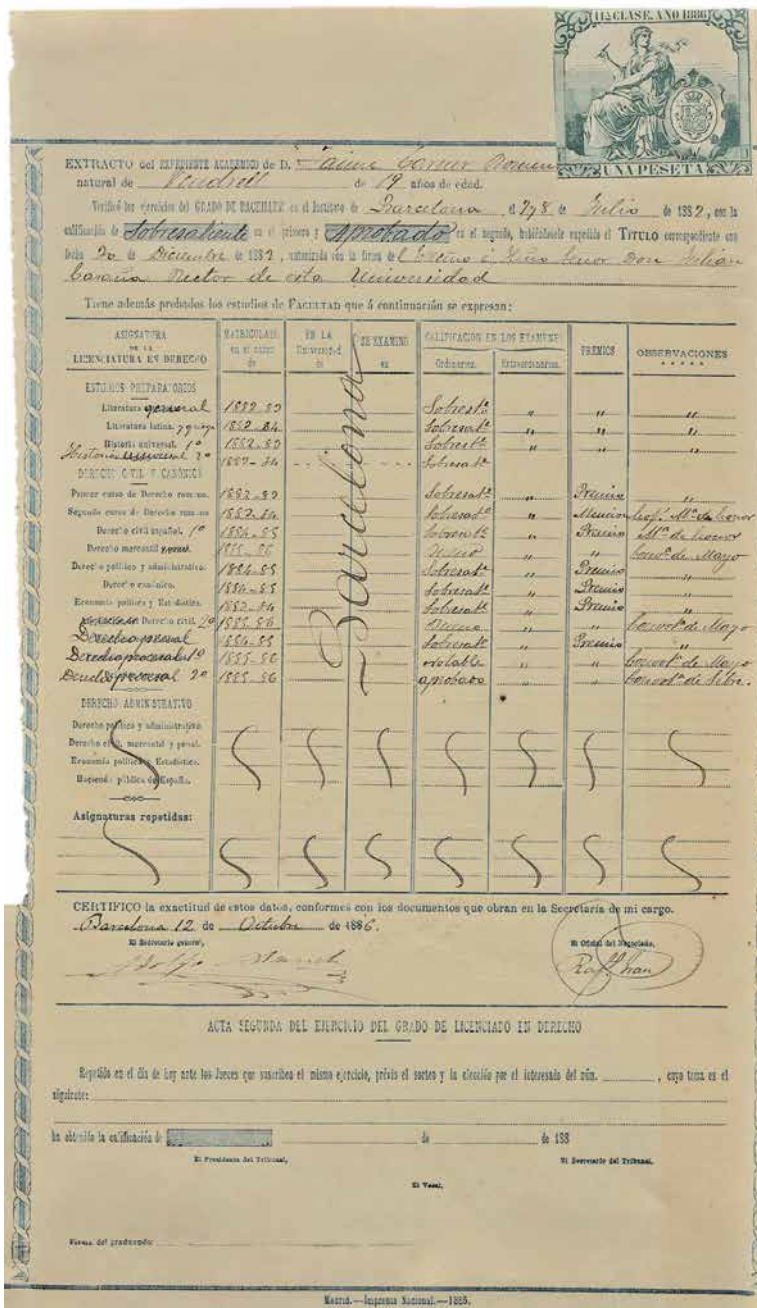 11ª CLASE. AÑO 1886
UNA PESETA
EXTRACTO del EXPEDIENTE ACADÉMICO de D. Jaime Carner Romeu
natural de Vendrell de 19 años de edad.
Verificó los ejercicios del GRADO DE BACHILLER en el Instituto de Barcelona el 7 y 8 de Julio de 1882, con la
calificación de Sobresaliente en el primero y Aprobado en el segundo, habiéndosele expedido el TÍTULO correspondiente con
fecha 30 de Diciembre de 1882, autorizado con la firma del Excmo é Iltmo Señor Don Julian
Casaña Rector de esta Universidad
Tiene además probados los estudios de FACULTAD que á continuación se expresan:
ASIGNATURA DE LA LICENCIATURA EN DERECHO MATRICULADO en el curso de EN LA Universidad de SE EXAMINÓ en CALIFICACIÓN EN LOS EXÁMENES PREMIOS OBSERVACIONES
Ordinarios. Extraordinarios.
Barcelona
ESTUDIOS PREPARATORIOS
Literatura general 1882-83 Sobreste " " "
Literatura latina. y griega 1883-84 Sobresate " " "
Historia universal. 1º 1882-83 Sobreste " " "
Historia universal 2º 1883-84 Sobresate
DERECHO CIVIL Y CANÓNICO
Primer curso de Derecho romano. 1882-83 Sobresate " Premio "
Segundo curso de Derecho romano 1883-84 Sobresate " Mencion de honor
Derecho civil español. 1º 1884-85 Sobresate " Premio Mn de honor
Derecho mercantil y penal. 1885-86 Bueno " " Convte de Mayo
Derecho político y administrativo. 1884-85 Sobresate " Premio "
Derecho canónico. 1884-85 Sobresate " Premio "
Economía política y Estadística. 1883-84 Sobresate " Premio "
Derecho civil. 2º 1885-86 Bueno " " Convte de Mayo
Derecho penal 1884-85 Sobresate " Premio "
Derecho procesal 1º 1885-86 Notable " " Convte de Mayo
Derecho procesal 2º 1885-86 aprobado " " Convte de Setbre.
DERECHO ADMINISTRATIVO
Derecho político y administrativo.
Derecho civil, mercantil y penal.
Economía política y Estadística.
Hacienda pública de España.
Asignaturas repetidas:
CERTIFICO la exactitud de estos datos, conformes con los documentos que obran en la Secretaría de mi cargo.
Barcelona 12 de Octubre de 1886.
El Secretario general,
El Oficial del Negociado,
Adolfo
Raf.
ACTA SEGUNDA DEL EJERCICIO DEL GRADO DE LICENCIADO EN DERECHO
Repetido en el día de hoy ante los Jueces que suscriben el mismo ejercicio, prévio el sorteo y la elección por el interesado del núm. , cuyo tema es el
siguiente:
ha obtenido la calificación de de de 188
El Presidente del Tribunal,
El Secretario del Tribunal,
El Vocal,
Firma del graduando:
Madrid.—Imprenta Nacional.—1885.